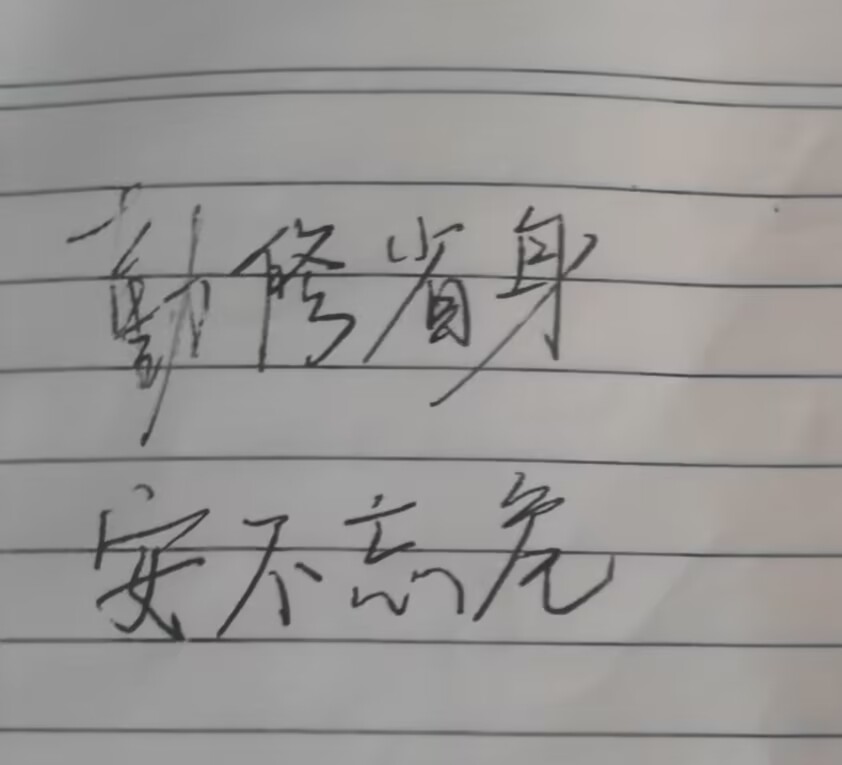 勤修省身
安不忘危